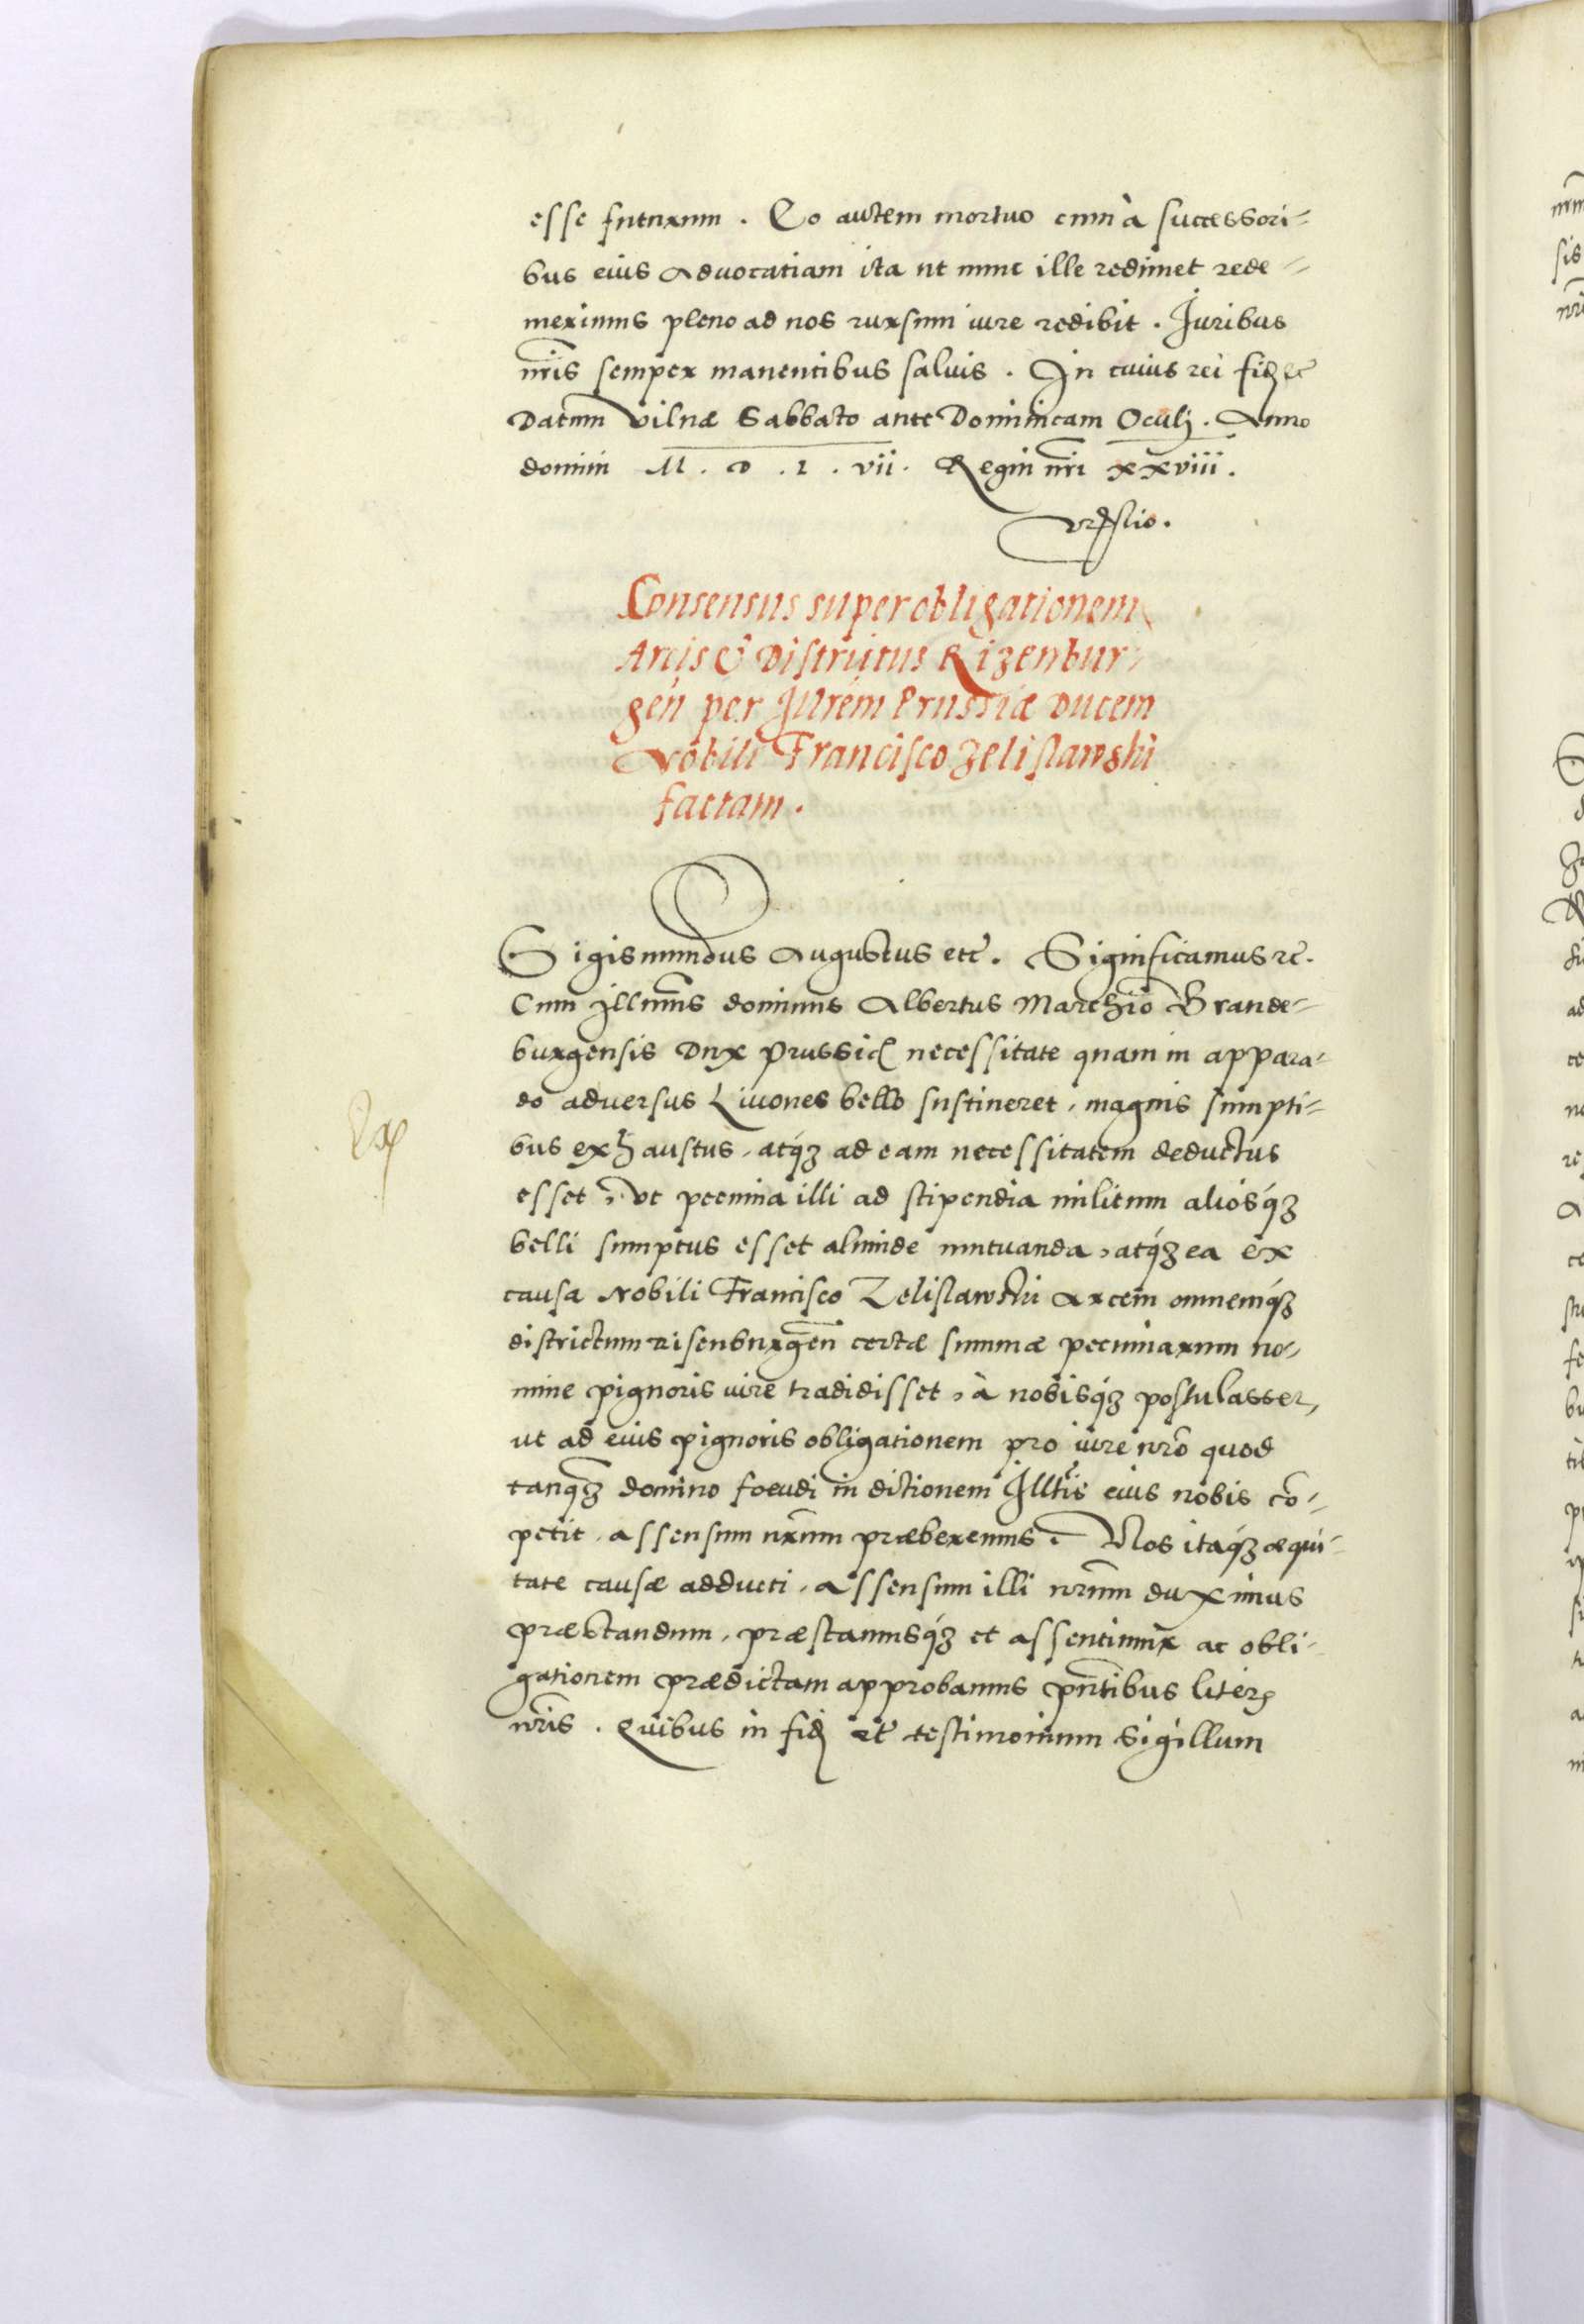 esse futurum. Eo autem mortuo cum à successori-
bus eius Advocatiam ita ut nunc ille redimet rede-
merimus pleno ad nos rursum iure redibit. Juribus
nris semper manentibus salvis. In cuius rei fid etc
Datum Vilnæ Sabbato ante Dominicam Oculi. Anno
domini M.D.L.vii. Regni nri xxviii.
Consensus super obligationem
Arcis & Districtus Rizenbur-
gen per Illrem Prussiæ Ducem
Nobili Francisco Zelislawski
factam.
Sigismundus Augustus etc. Significamus etc.
Cum Illmus dominus Albertus Marchio Brande-
burgensis Dux Prussię necessitate quam in appara-
do adversus Livones bello sustineret, magnis sumpti-
bus exhaustus, atq3 ad eam necessitatem deductus
esset, ut pecunia illi ad stipendia militum aliosq3
belli sumptus esset aliunde mutuanda, atq3 ea ex
causa Nobili Francisco Zelislawski Arcem omnemq3
districtum Risenburgen certæ summæ pecuniarum no-
mine pignoris iure tradidisset, à nobisq3 postulasset,
ut ad eius pignoris obligationem pro iure nro quod
tanq3 domino foeudi in ditionem Illtis eius nobis co-
petit, assensum nrum præberemus. Nos itaq3 æqui-
tate causæ adducti, assensum illi nrum duximus
præstandum, præstamusq3 et assentimur ac obli-
gationem prædictam approbamus pntibus literis
nris. Quibus in fid et testimonium sigillum